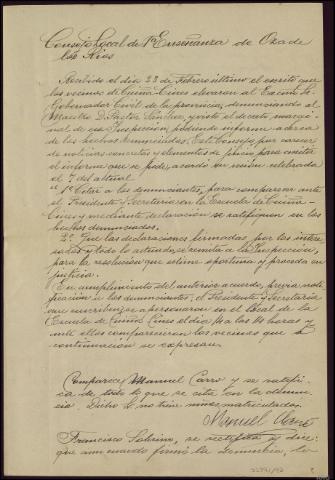 Consejo Local de 1ª Enseñanza de Oza de
los Ríos
Recibido el día 23 de Febrero último el escrito que
los vecinos de Cuiña-Cines elevaron al Excmo. Sr.
Gobernador Civil de la provincia, denunciando al
Maestro D. Pastor Sánchez, y visto el decreto margi-
nal de esa Inspección, pidiendo informe acerca
de los hechos denunciados, Este Consejo por carecer
de noticias concretas y elementos de juicio, para emitir
el informe que se pide, acordó en sesión celebrada
el 7 del actual
1º Citar a los denunciantes, para comparecer ante
el Presidente y Secretaria en la Escuela de Cuiña-
Cines y mediante declaración se ratifiquen en los
hechos denunciados.
2º Que las declaraciones firmadas por los intere
sados y todo lo actuado, se remita a la Inspección,
para la resolución que estime oportuna y proceda en
justicia.
En cumplimiento del anterior acuerdo, previa noti-
ficación a los denunciantes; el Presidente y Secretaria
que suscriben, se personaron en el local de la
Escuela de Cuiña Cines el día 14 a las 14 horas y
ante ellos comparecieron los vecinos que a
continuación se expresan.
Comparece Manuel Carro y se ratifi-
ca de todo lo que se cita en la denun-
cia. Dicho Sr. no tiene niños matriculados.
Manuel Carro
Francisco Sabino, se rectifica y dice
que aun cuando firmó la denuncia, lo